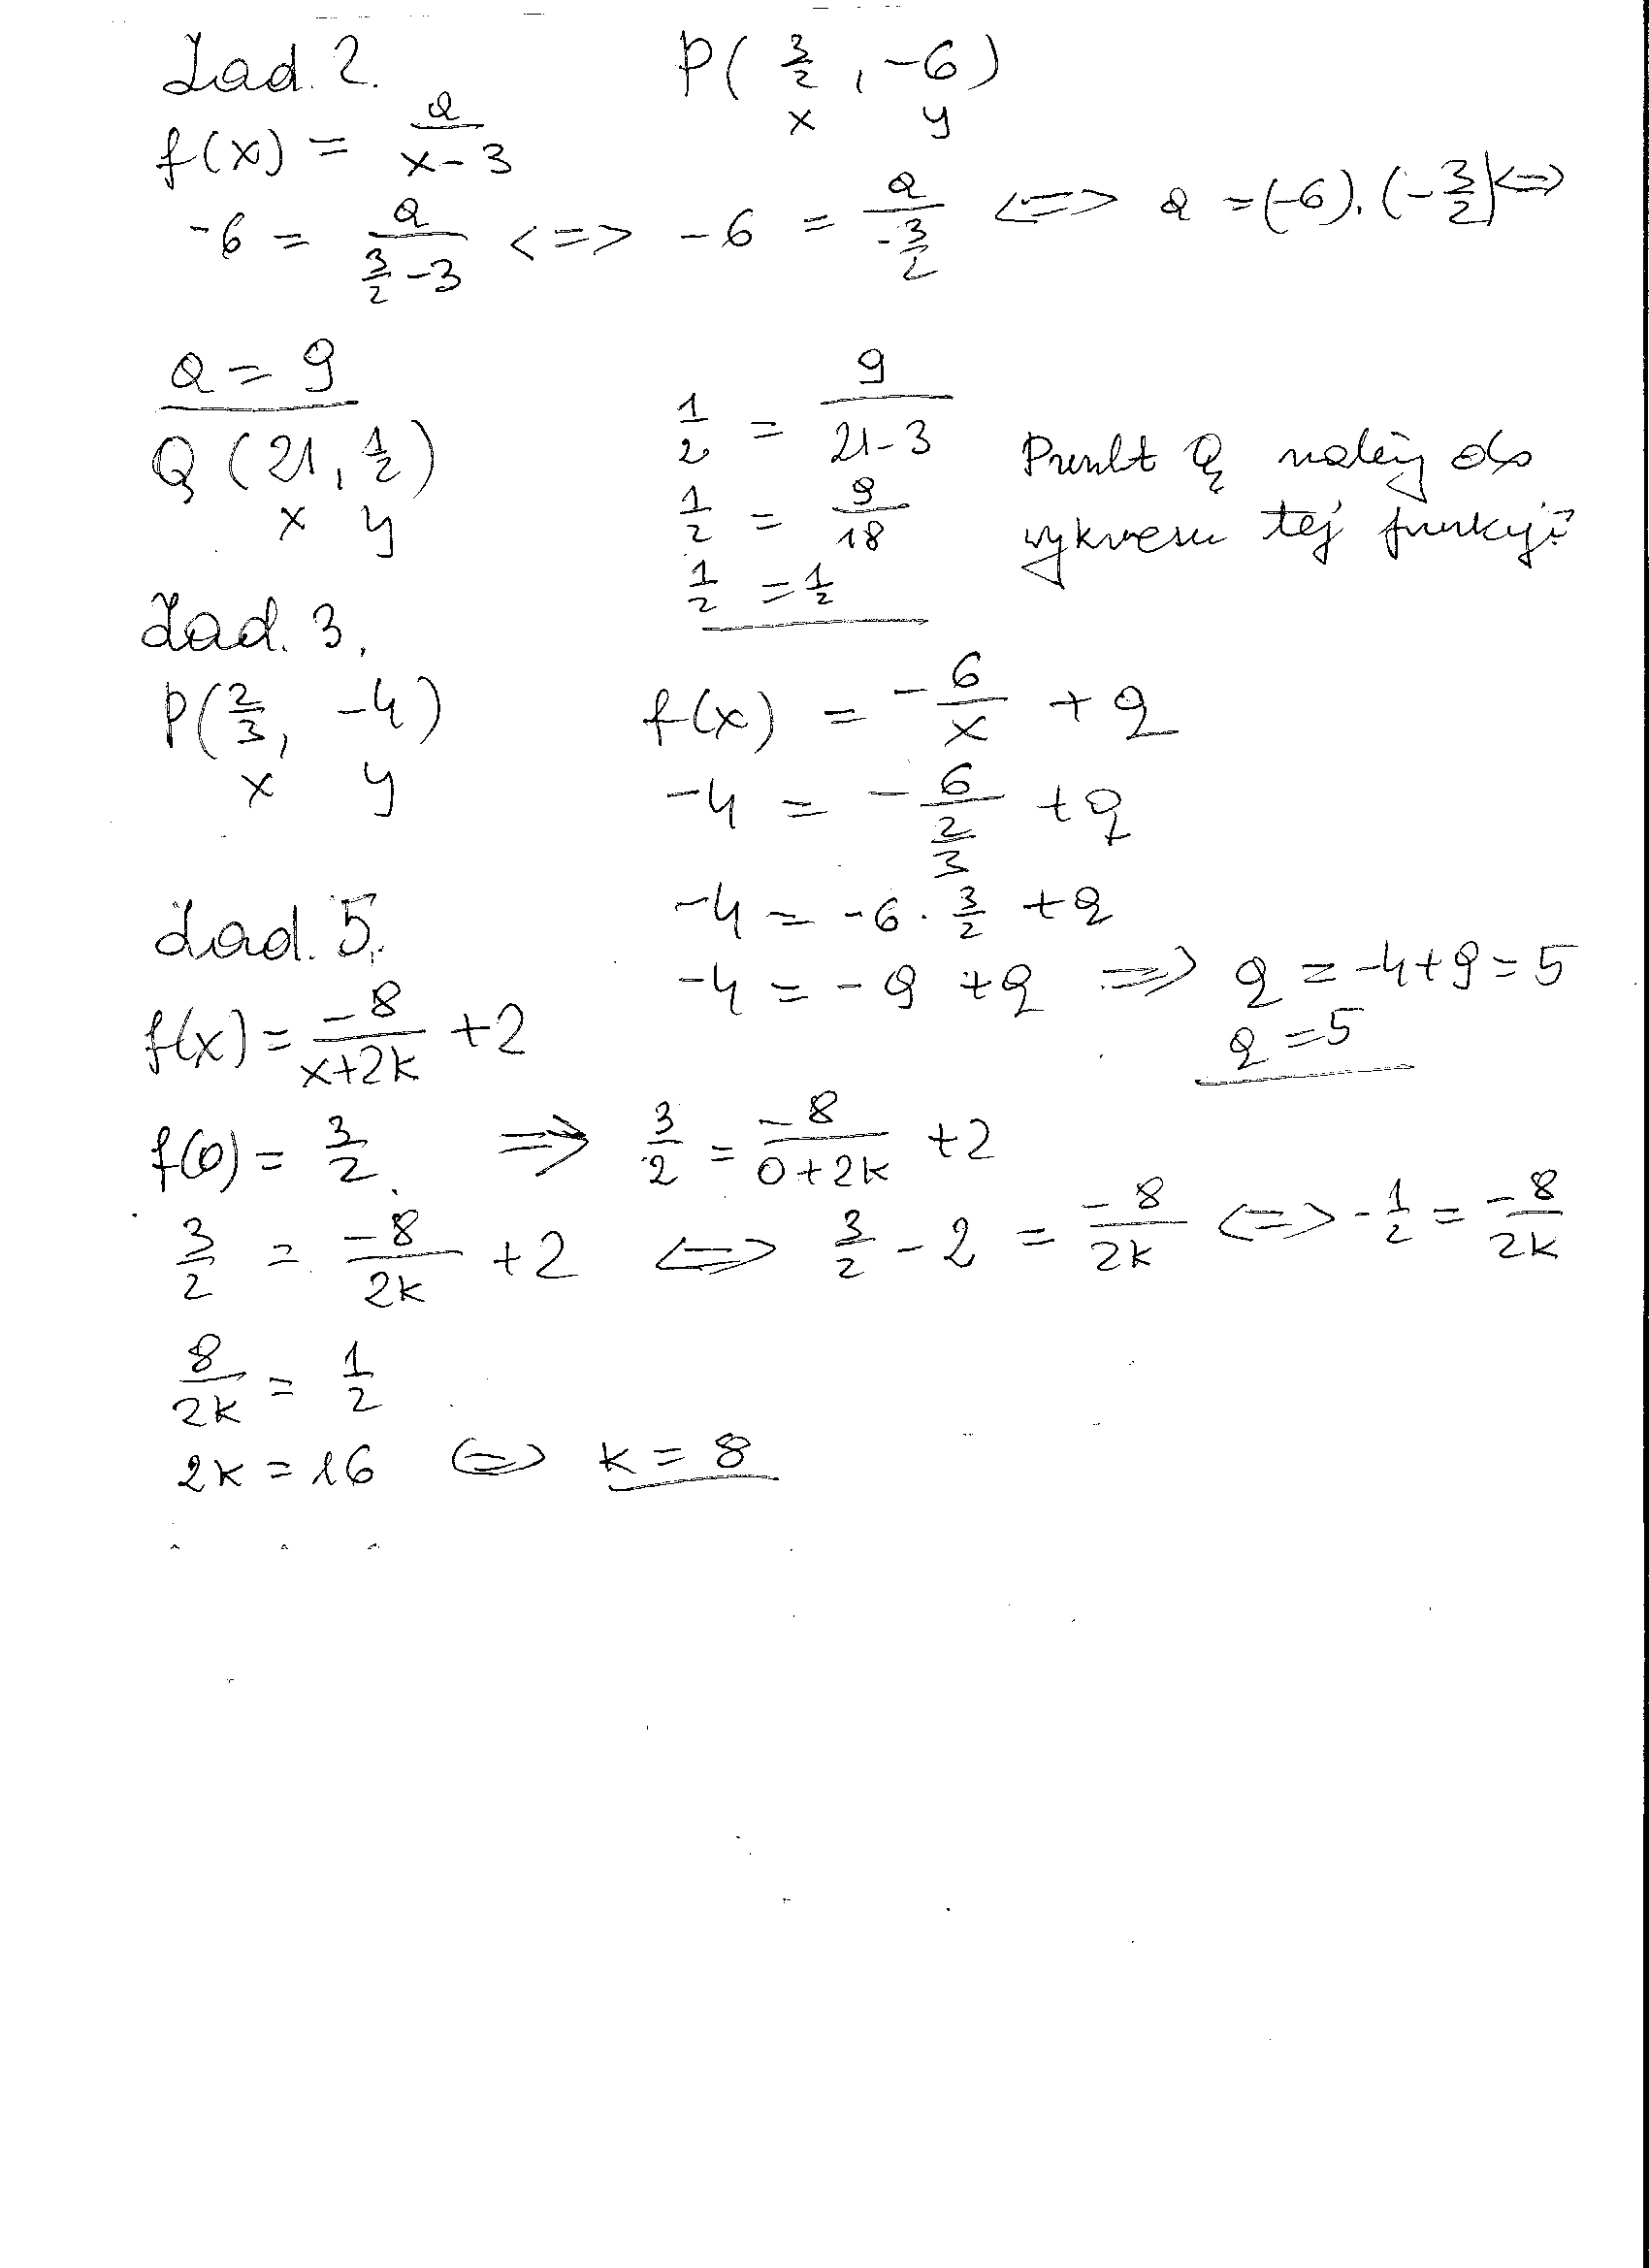 Zad. 2. P( 3/2 , -6)
x y
f(x) = a/(x-3)
-6 = a/(3/2 - 3) <=> -6 = a/(-3/2) <=> a = (-6).(-3/2) <=>
a = 9
Q (21, 1/2)
x y
1/2 = 9/(21-3)
1/2 = 9/18
1/2 = 1/2
Punkt Q należy do
wykresu tej funkcji
Zad. 3.
P(2/3, -4)
x y
f(x) = -6/x + q
-4 = - 6/(2/3) + q
-4 = -6 . 3/2 + q
-4 = -9 + q => q = -4+9 = 5
q = 5
Zad. 5.
f(x) = -8/(x+2k) + 2
f(0) = 3/2 => 3/2 = -8/(0+2k) + 2
3/2 = -8/2k + 2 <=> 3/2 - 2 = -8/2k <=> -1/2 = -8/2k
8/2k = 1/2
2k = 16 <=> k = 8